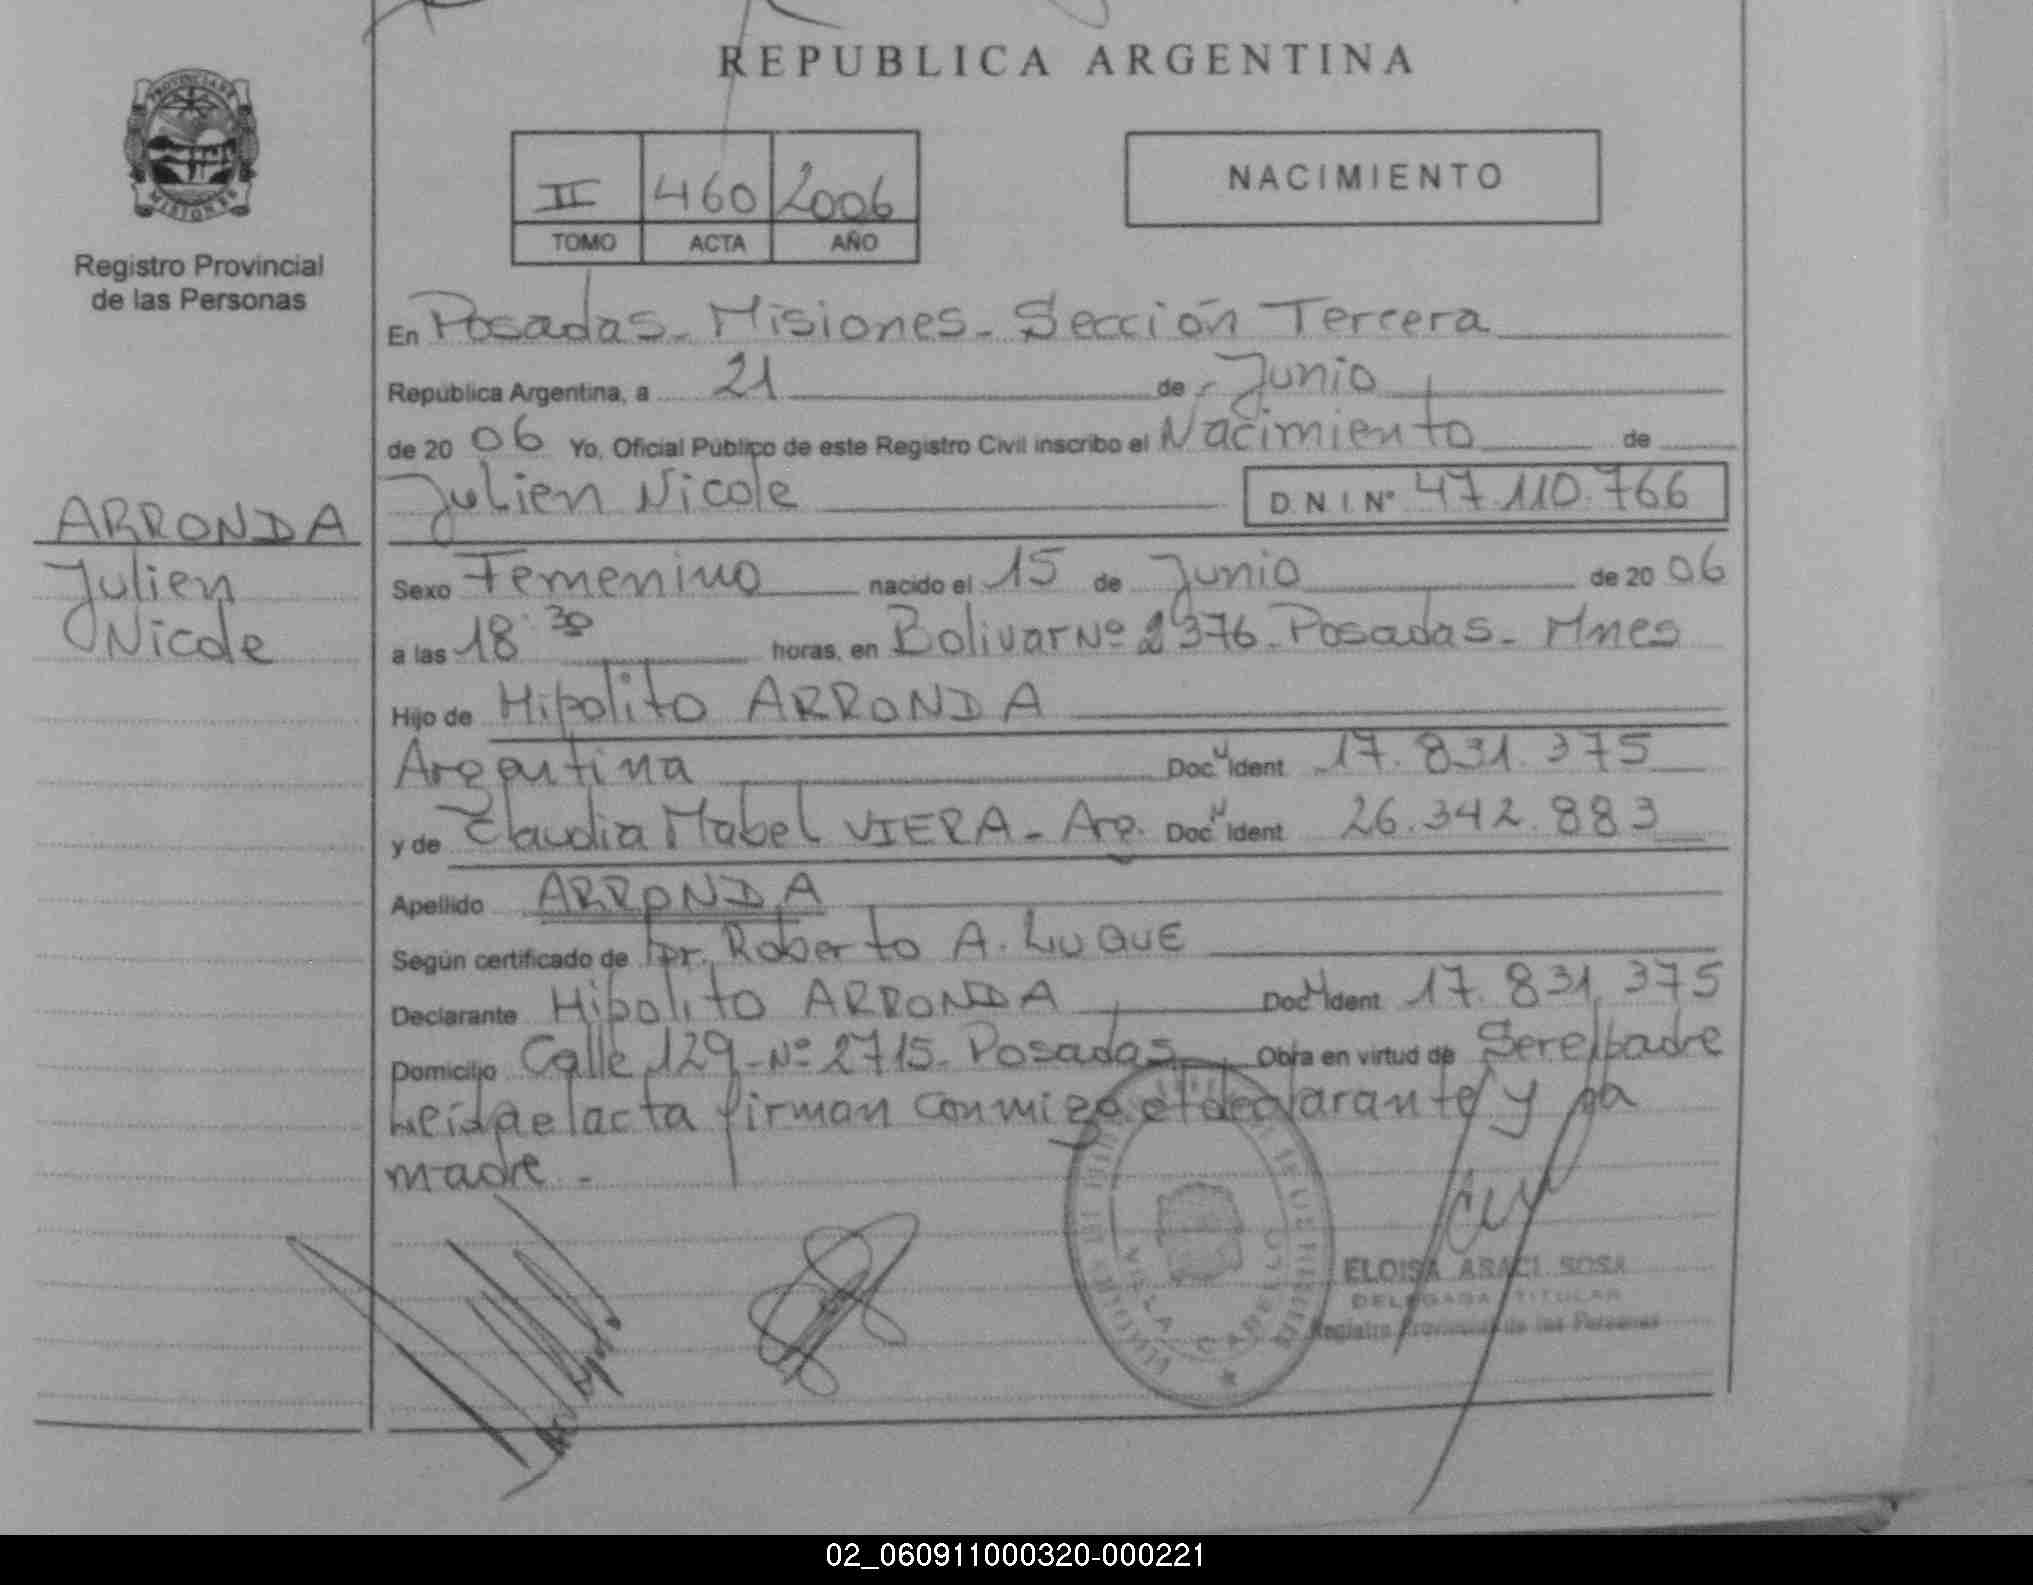 REPUBLICA ARGENTINA
PROVINCIA DE
MISIONES
Registro Provincial
de las Personas
II 460 2006
TOMO ACTA AÑO
NACIMIENTO
En Posadas - Misiones - Sección Tercera
República Argentina, a 21 de Junio
de 20 06 Yo, Oficial Público de este Registro Civil inscribo el Nacimiento de
Julien Nicole D.N.I. Nº 47.110.766
ARRONDA
Julien
Nicole
Sexo Femenino nacido el 15 de Junio de 20 06
a las 18:30 horas, en Bolivar Nº 2376 - Posadas - Mnes
Hijo de Hipolito ARRONDA
Argentina Doc. Ident 17.831.375
y de Claudia Mabel VIERA - Arg. Doc. Ident 26.342.883
Apellido ARRONDA
Según certificado de Dr. Roberto A. LUQUE
Declarante Hipolito ARRONDA Doc. Ident 17.831.375
Domicilio Calle 129 - Nº 2715 - Posadas Obra en virtud de Ser el padre
Leida el acta firman conmigo el declarante y la
madre -
VILLA CABELLO
ELOISA ARACI SOSA
DELEGADA TITULAR
Registro Provincial de las Personas
02_060911000320-000221